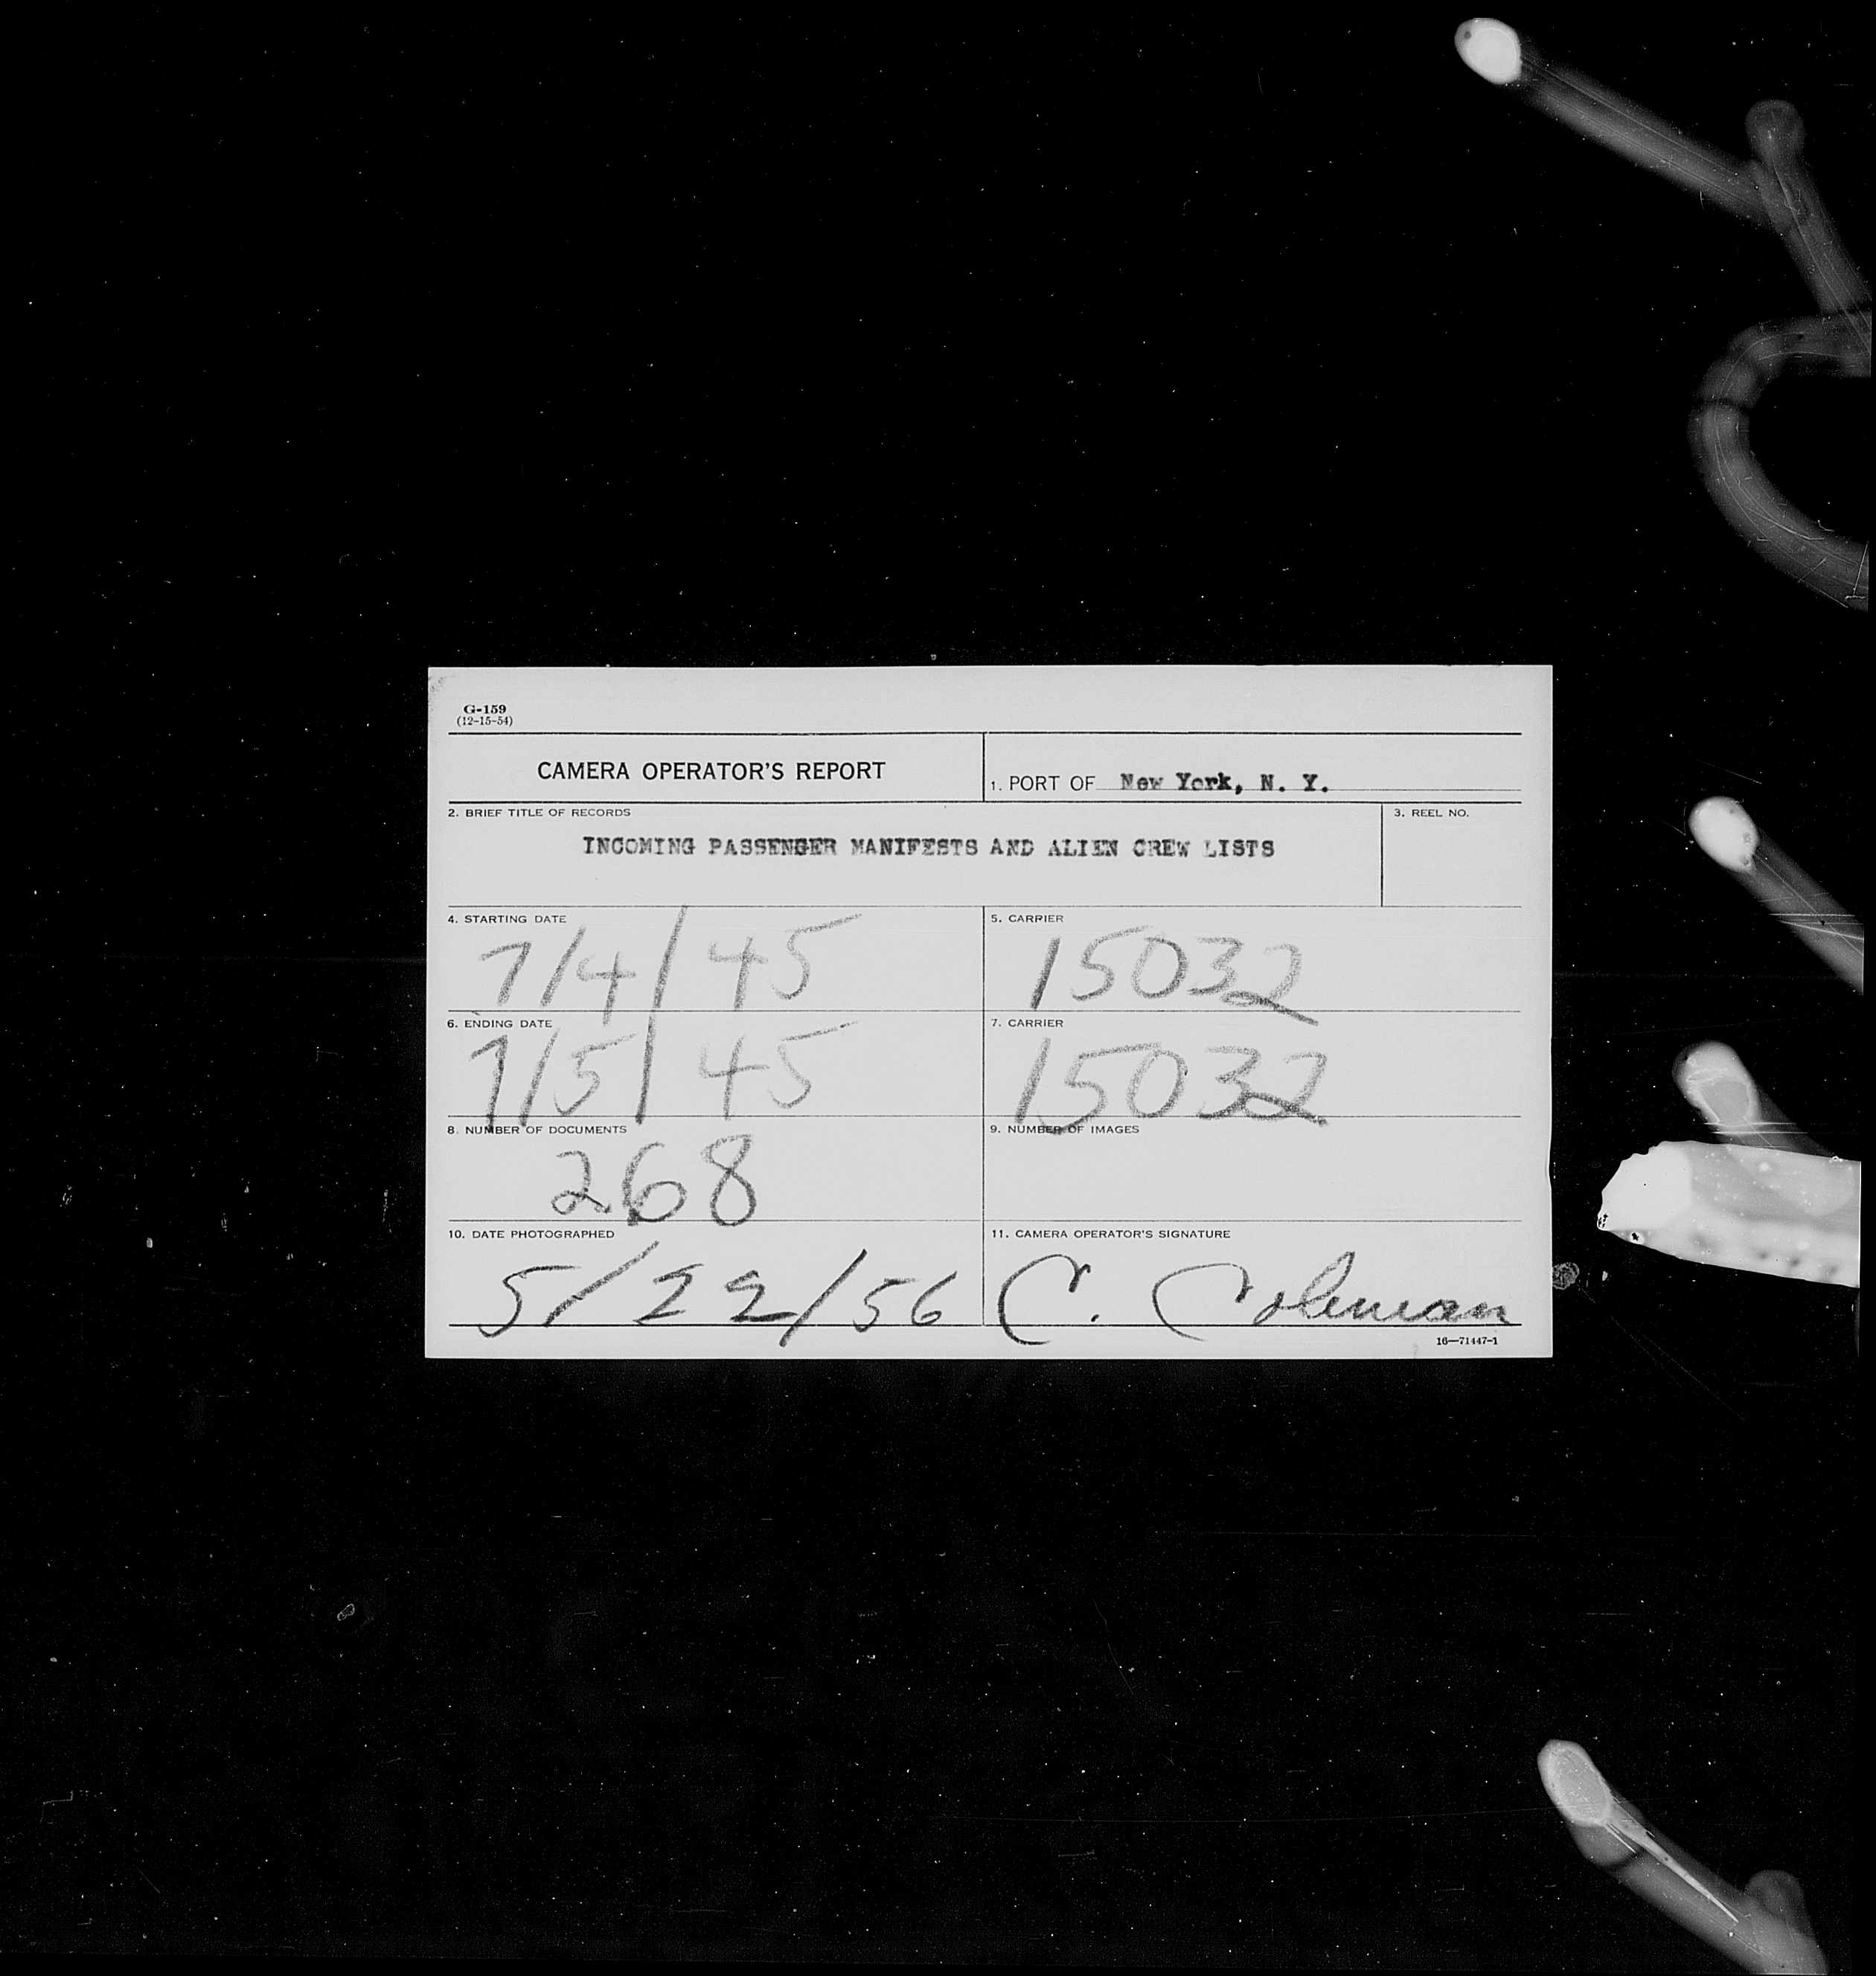 G-159
(12-15-54)
CAMERA OPERATOR'S REPORT
1. PORT OF New York, N. Y.
2. BRIEF TITLE OF RECORDS
INCOMING PASSENGER MANIFESTS AND ALIEN CREW LISTS
3. REEL NO.
4. STARTING DATE
7/4/45
5. CARRIER
15032
6. ENDING DATE
7/5/45
7. CARRIER
15032
8. NUMBER OF DOCUMENTS
268
9. NUMBER OF IMAGES
10. DATE PHOTOGRAPHED
5/22/56
11. CAMERA OPERATOR'S SIGNATURE
C. Coleman
16—71447-1